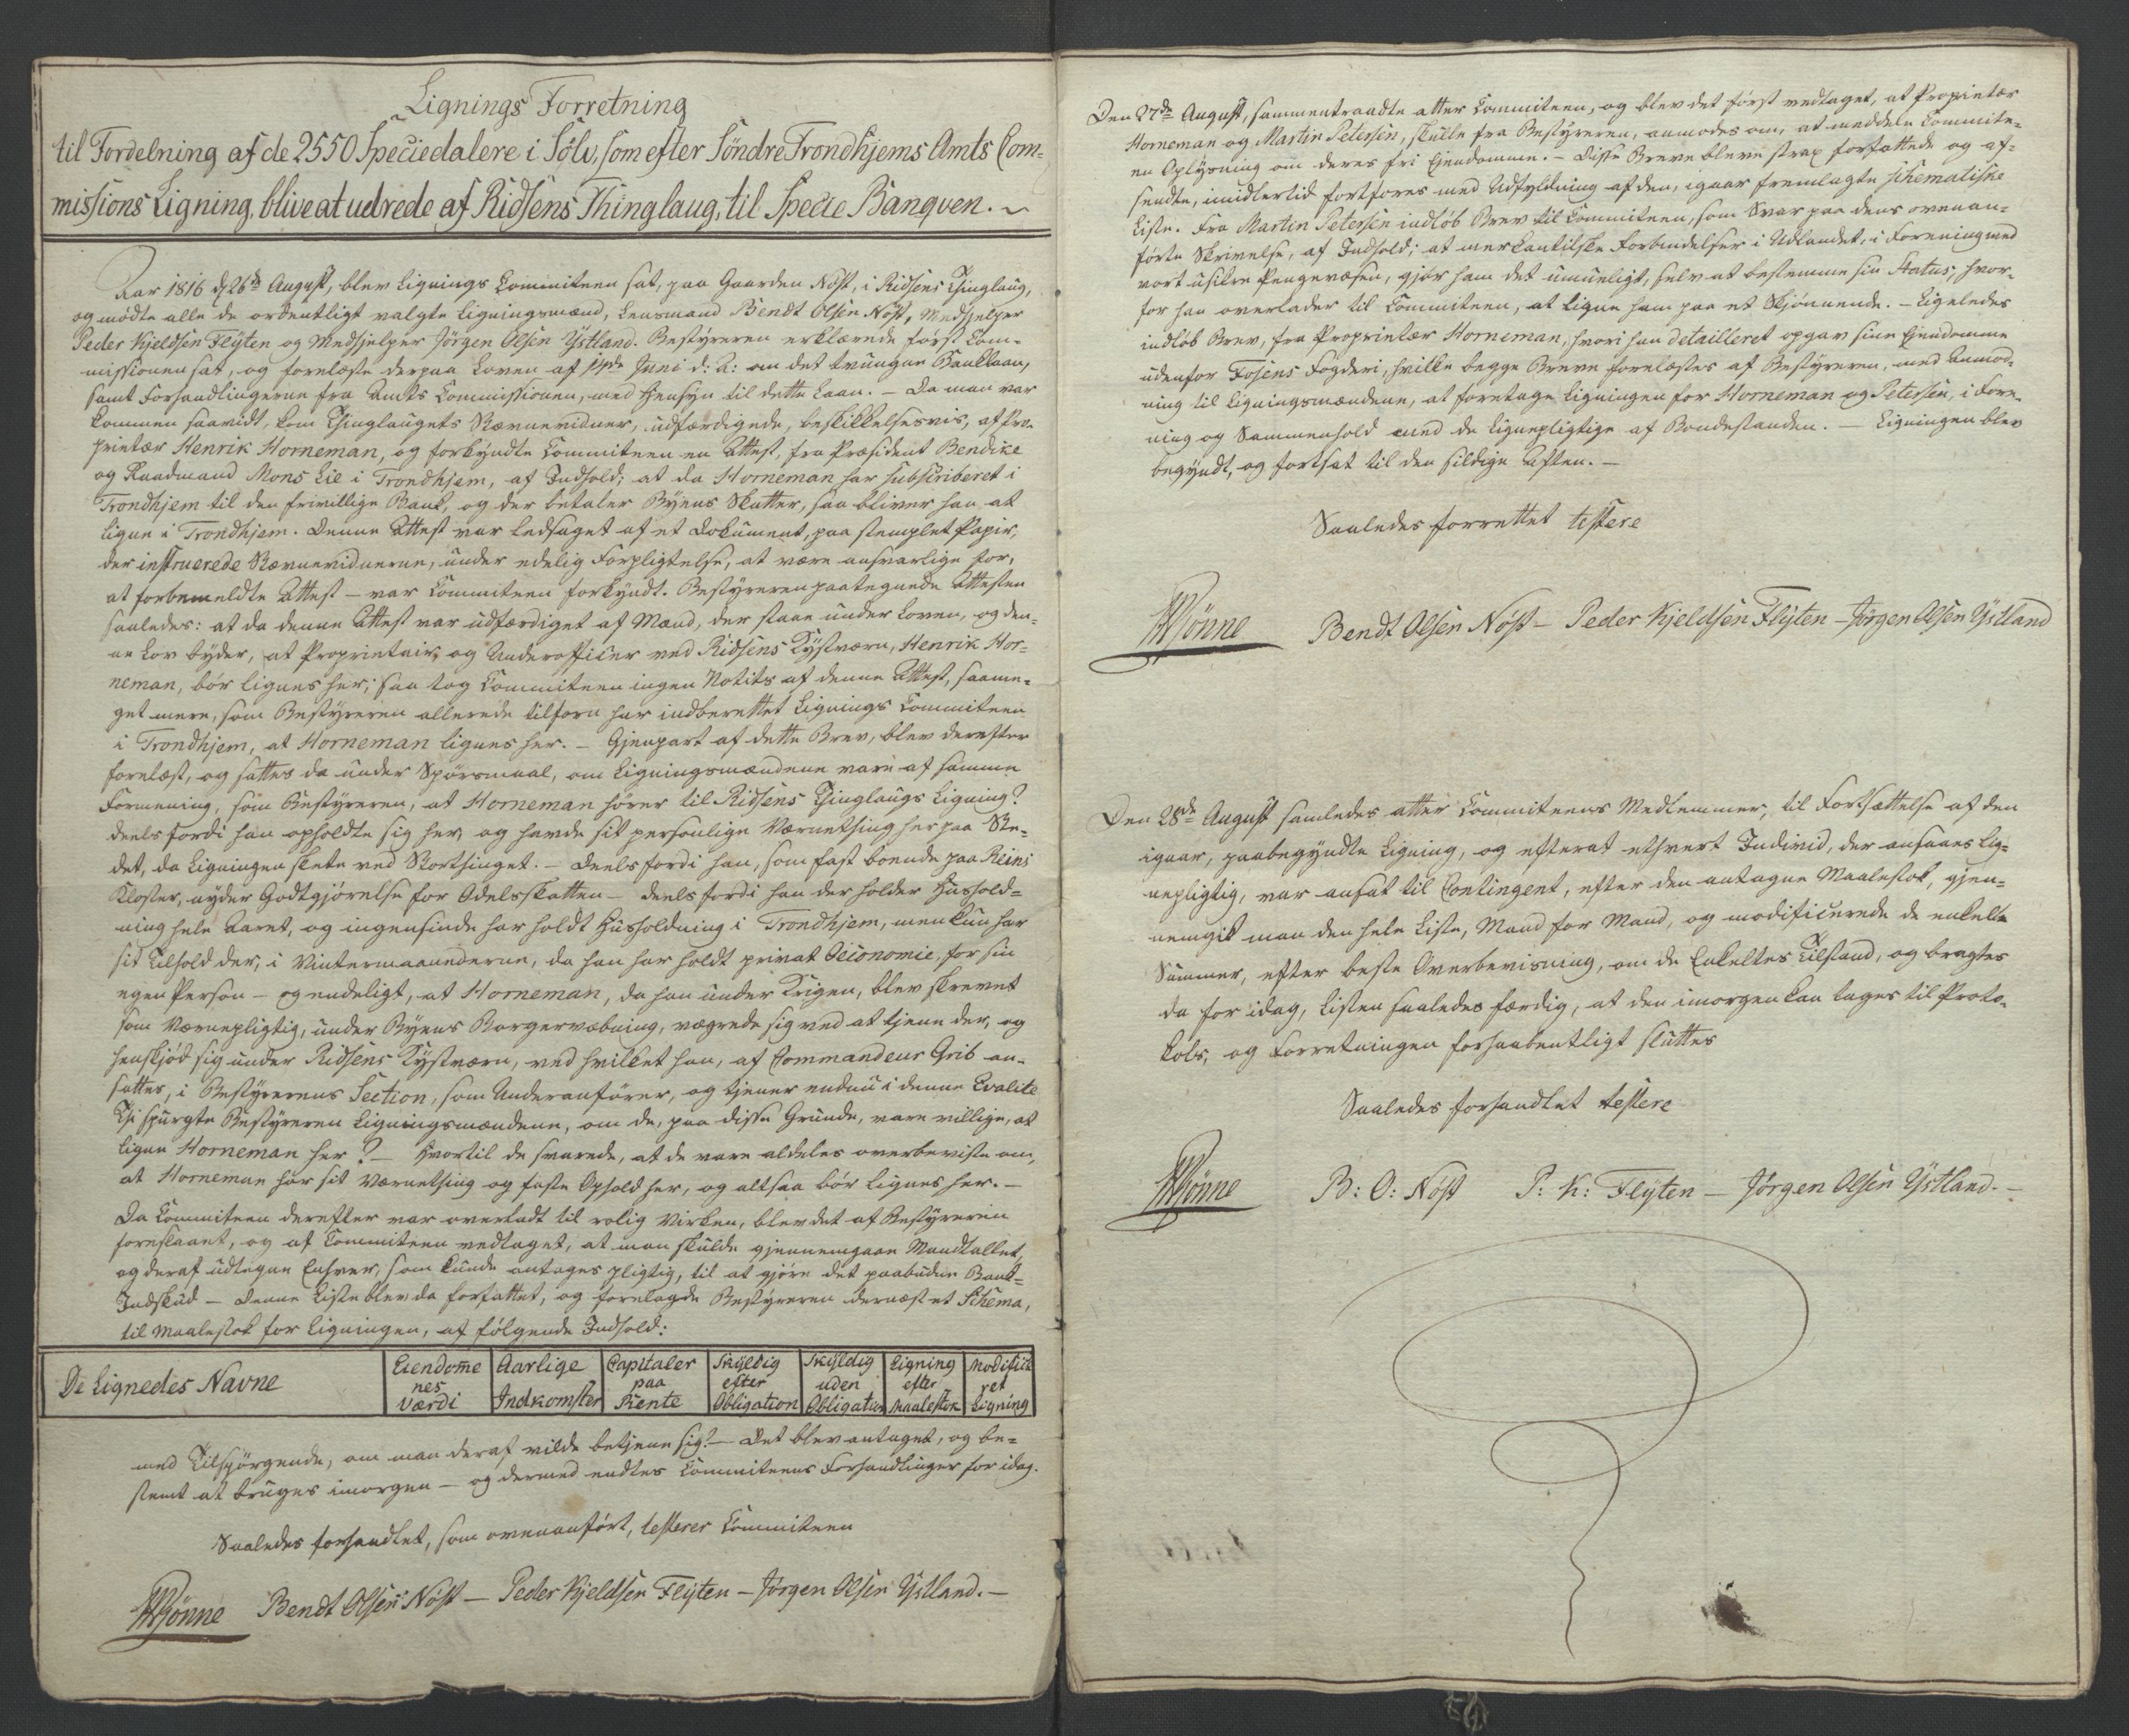 Lignings Forretning
til Fordelning af de 2550 Speciedalere i Sölv, som efter Söndre Trondhjems Amts Com=
missions Ligning, blive at udrede af Ridsens Thinglaug, til Specie Banqven. ~
Aar 1816 d 26de August, blev Lignings Commiteen sat, paa Gaarden Nöst, i Ridsens Thinglaug,
og mödte alle de ordentligt valgte Ligningsmænd, Lensmand Bendt Olsen Nöst, Medhjelper
Peder Kjeldsen Flÿten og Medhjelper Jörgen Olsen Ÿstland. Bestÿreren erklærede först Com=
missionen sat, og forelæste derpaa Loven af 14de Juni d: A: om det tvungne Banklaan,
samt Forhandlingerne fra Amts Commissionen, med Hensÿn til dette Laan. – Da man var
kommen saavidt, kom Thinglaugets Stævnevidner, udfærdigede, beskikkelsesvis, af Pro=
prietær Henrik Horneman, og forkÿndte Commiteen en Attest, fra Præsident Bendike
og Raadmand Mons Lie i Trondhjem, af Indhold; at da Horneman har subscriberet i
Trondhjem til den frivillige Bank, og der betaler Bÿens Skatter, saa bliver han at
ligne i Trondhjem. Denne Attest var ledsaget af et Dokument, paa stemplet Papir,
der instruerede Stævnevidnerne, under edelig Forpligtelse, at være ansvarlige for,
at forbemeldte Attest – var Commiteen forkÿndt. Bestÿreren paategnede Attesten
saaledes: at da denne Attest var udfærdiget af Mænd, der staae under Loven, og den=
ne Lov bÿder, at Proprietair, og Underofficer ved Ridsens Kÿstværn, Henrik Hor=
neman, bör lignes her; saa tog Commiteen ingen Notits af denne Attest, saame=
get mere, som Bestÿreren allerede tilforn har indberettet Lignings Commiteen
i Trondhjem, at Horneman lignes her. – Gjenpart af dette Brev, blev derefter
forelæst, og sattes da under Spörsmaal, om Ligningsmændene vare af samme
Formening, som Bestÿreren, at Horneman hörer til Ridsens Thinglaugs Ligning?
deels fordi han opholdte sig her, og havde sit personlige Værnething her paa Ste=
det, da Ligningen skete ved Storthinget. – Deels fordi han, som fast boende paa Reins
Kloster, nÿder Godtgjörelse for Odelsskatten – deels fordi han der holder Hushold=
ning hele Aaret, og ingensinde har holdt Husholdning i Trondhjem, men kun har
sit Tilhold der, i Vintermaanederne, da han har holdt privat Oeconomie, for sin
egen Person – og endeligt, at Horneman, da han under Krigen, blev skrevet
som Værnepligtig, under Bÿens Borgervæbning, vægrede sig ved at tjene der, og
henskjöd sig under Ridsens Kÿstværn, ved hvilket han, af Commandeur Grib an=
sattes, i Bestÿrerens Section, som Underanförer, og tjener endnu i denne Qvalité
Thi spurgte Bestÿreren Ligningsmændene, om de, paa disse Grunde, vare villige, at
ligne Horneman her? – Hvortil de svarede, at de vare aldeles overbeviste om,
at Horneman har sit Værnething og faste Ophold her, og altsaa bör lignes her. –
Da Commiteen derefter var overladt til rolig Virken, blev det af Bestÿreren
foreslaaet, og af Commiteen vedtaget, at man skulde gjennemgaae Mandtallet,
og deraf udtegne Enhver, som kunde antages pligtig, til at gjöre det paabudne Bank=
Indskud – Denne Liste blev da forfattet, og forelagde Bestÿreren dernæst et Schema,
til Maalestok for Ligningen, af fölgende Indhold:
De Lignedes Navne | Eiendomenes Værdi | Aarlige Indkomster | Capitaler paa Rente | Skÿldig efter Obligation | Skÿldig uden Obligation | Ligning efter Maalestok | Modificeret Ligning
med Tilspörgende, om man deraf vilde betjene sig? – Det blev antaget, og be=
stemt at bruges imorgen – og dermed endtes Commiteens Forhandlinger for idag.
Saaledes forhandlet, som ovenanfört, testerer Commiteen
HRönne Bendt Olsen Nöst – Peder Kjeldsen Flÿten – Jörgen Olsen Ÿstland. –
Den 27de August, sammentraadte atter Commiteen, og blev det först vedtaget, at Proprietær
Horneman og Martin Petersen, skulle fra Bestÿreren, anmodes om, at meddele Commite=
en Oplÿsning om deres fri Ejendomme. – Disse Breve bleve strax forfattede og af=
sendte, imidlertid fortfores med Udfÿldning af den, igaar fremlagte schematiske
Liste. Fra Martin Petersen indlöb Brev til Commiteen, som Svar paa dens ovenan=
förte Skrivelse, af Indhold; at merkantilske Forbindelser i Udlandet, i Forening med
vort usikre Pengevæsen, gjör ham det umueligt, selv at bestemme sin Status, hvor=
for han overlader til Commiteen, at ligne ham paa et Skjönnende. – Ligeledes
indlöb Brev, fra Proprietær Horneman, hvori han detailleret opgav sine Ejendomme
udenfor Fosens Fogderi, hvilke begge Breve forelæstes af Bestÿreren, med Anmod=
ning til Ligningsmændene, at foretage Ligningen for Horneman og Petersen, i Fore=
ning og Sammenhold med de Lignepligtige af Bondestanden. – Ligningen blev
begÿndt, og fortsat til den sildige Aften. –
Saaledes forrettet testere
HRönne Bendt Olsen Nöst – Peder Kjeldsen Flÿten – Jörgen Olsen Ÿstland
Den 28de August samledes atter Commiteens Medlemmer, til Fortsættelse af den
igaar, paabegÿndte Ligning, og efterat ethvert Individ, der ansaaes Lig=
nepligtig, var ansat til Contingent, efter den antagne Maalestok, gjen=
nemgik man den hele Liste, Mand for Mand, og modificerede de enkelte
Summer, efter beste Overbeviisning, om de Enkeltes Tilstand, og bragtes
da for idag, Listen saaledes færdig, at den imorgen kan tages til Proto=
kols, og Forretningen forhaabentligt sluttes
Saaledes forhandlet testere
HRönne B: O: Nöst P: K: Flÿten – Jörgen Olsen Ÿstland. –